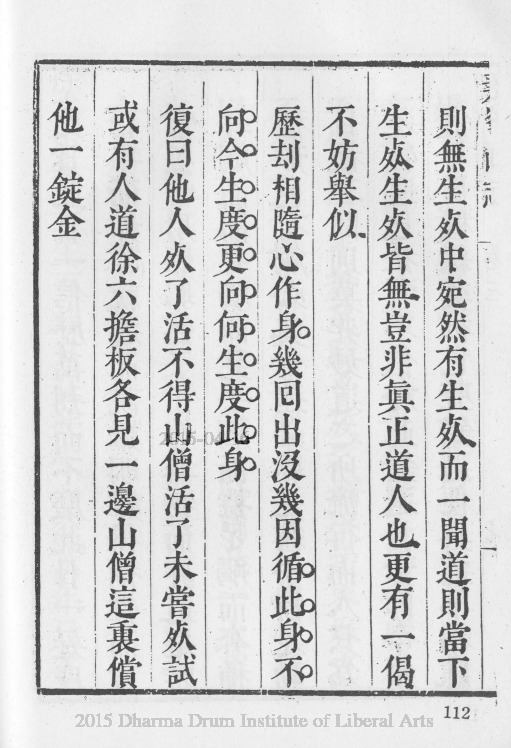 則無生死中宛然有生死而一聞道則當下
生死生死皆無豈非真正道人也更有一偈
不妨舉似
歷刼相隨心作身幾囘出沒幾因循此身不
向今生度更向何生度此身
復曰他人死了活不得山僧活了未嘗死試
或有人道徐六擔板各見一邊山僧這裏償
他一錠金
112
2015-04-15
2015 Dharma Drum Institute of Liberal Arts